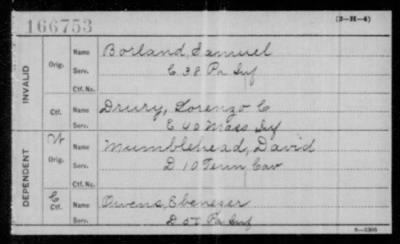 166753
(3-H-4)
INVALID
Orig.
Name Borland, Samuel
Serv. C 38 Pa Inf
Ctf. No.
Ctf.
Name Drury, Lorenzo C
Serv. E 40 Mass Inf
DEPENDENT
W
Orig.
Name Mumblehead, David
Serv. D 10 Tenn Cav
Ctf. No.
C
Ctf.
Name Owens, Ebeneser
Serv. D Pa Inf